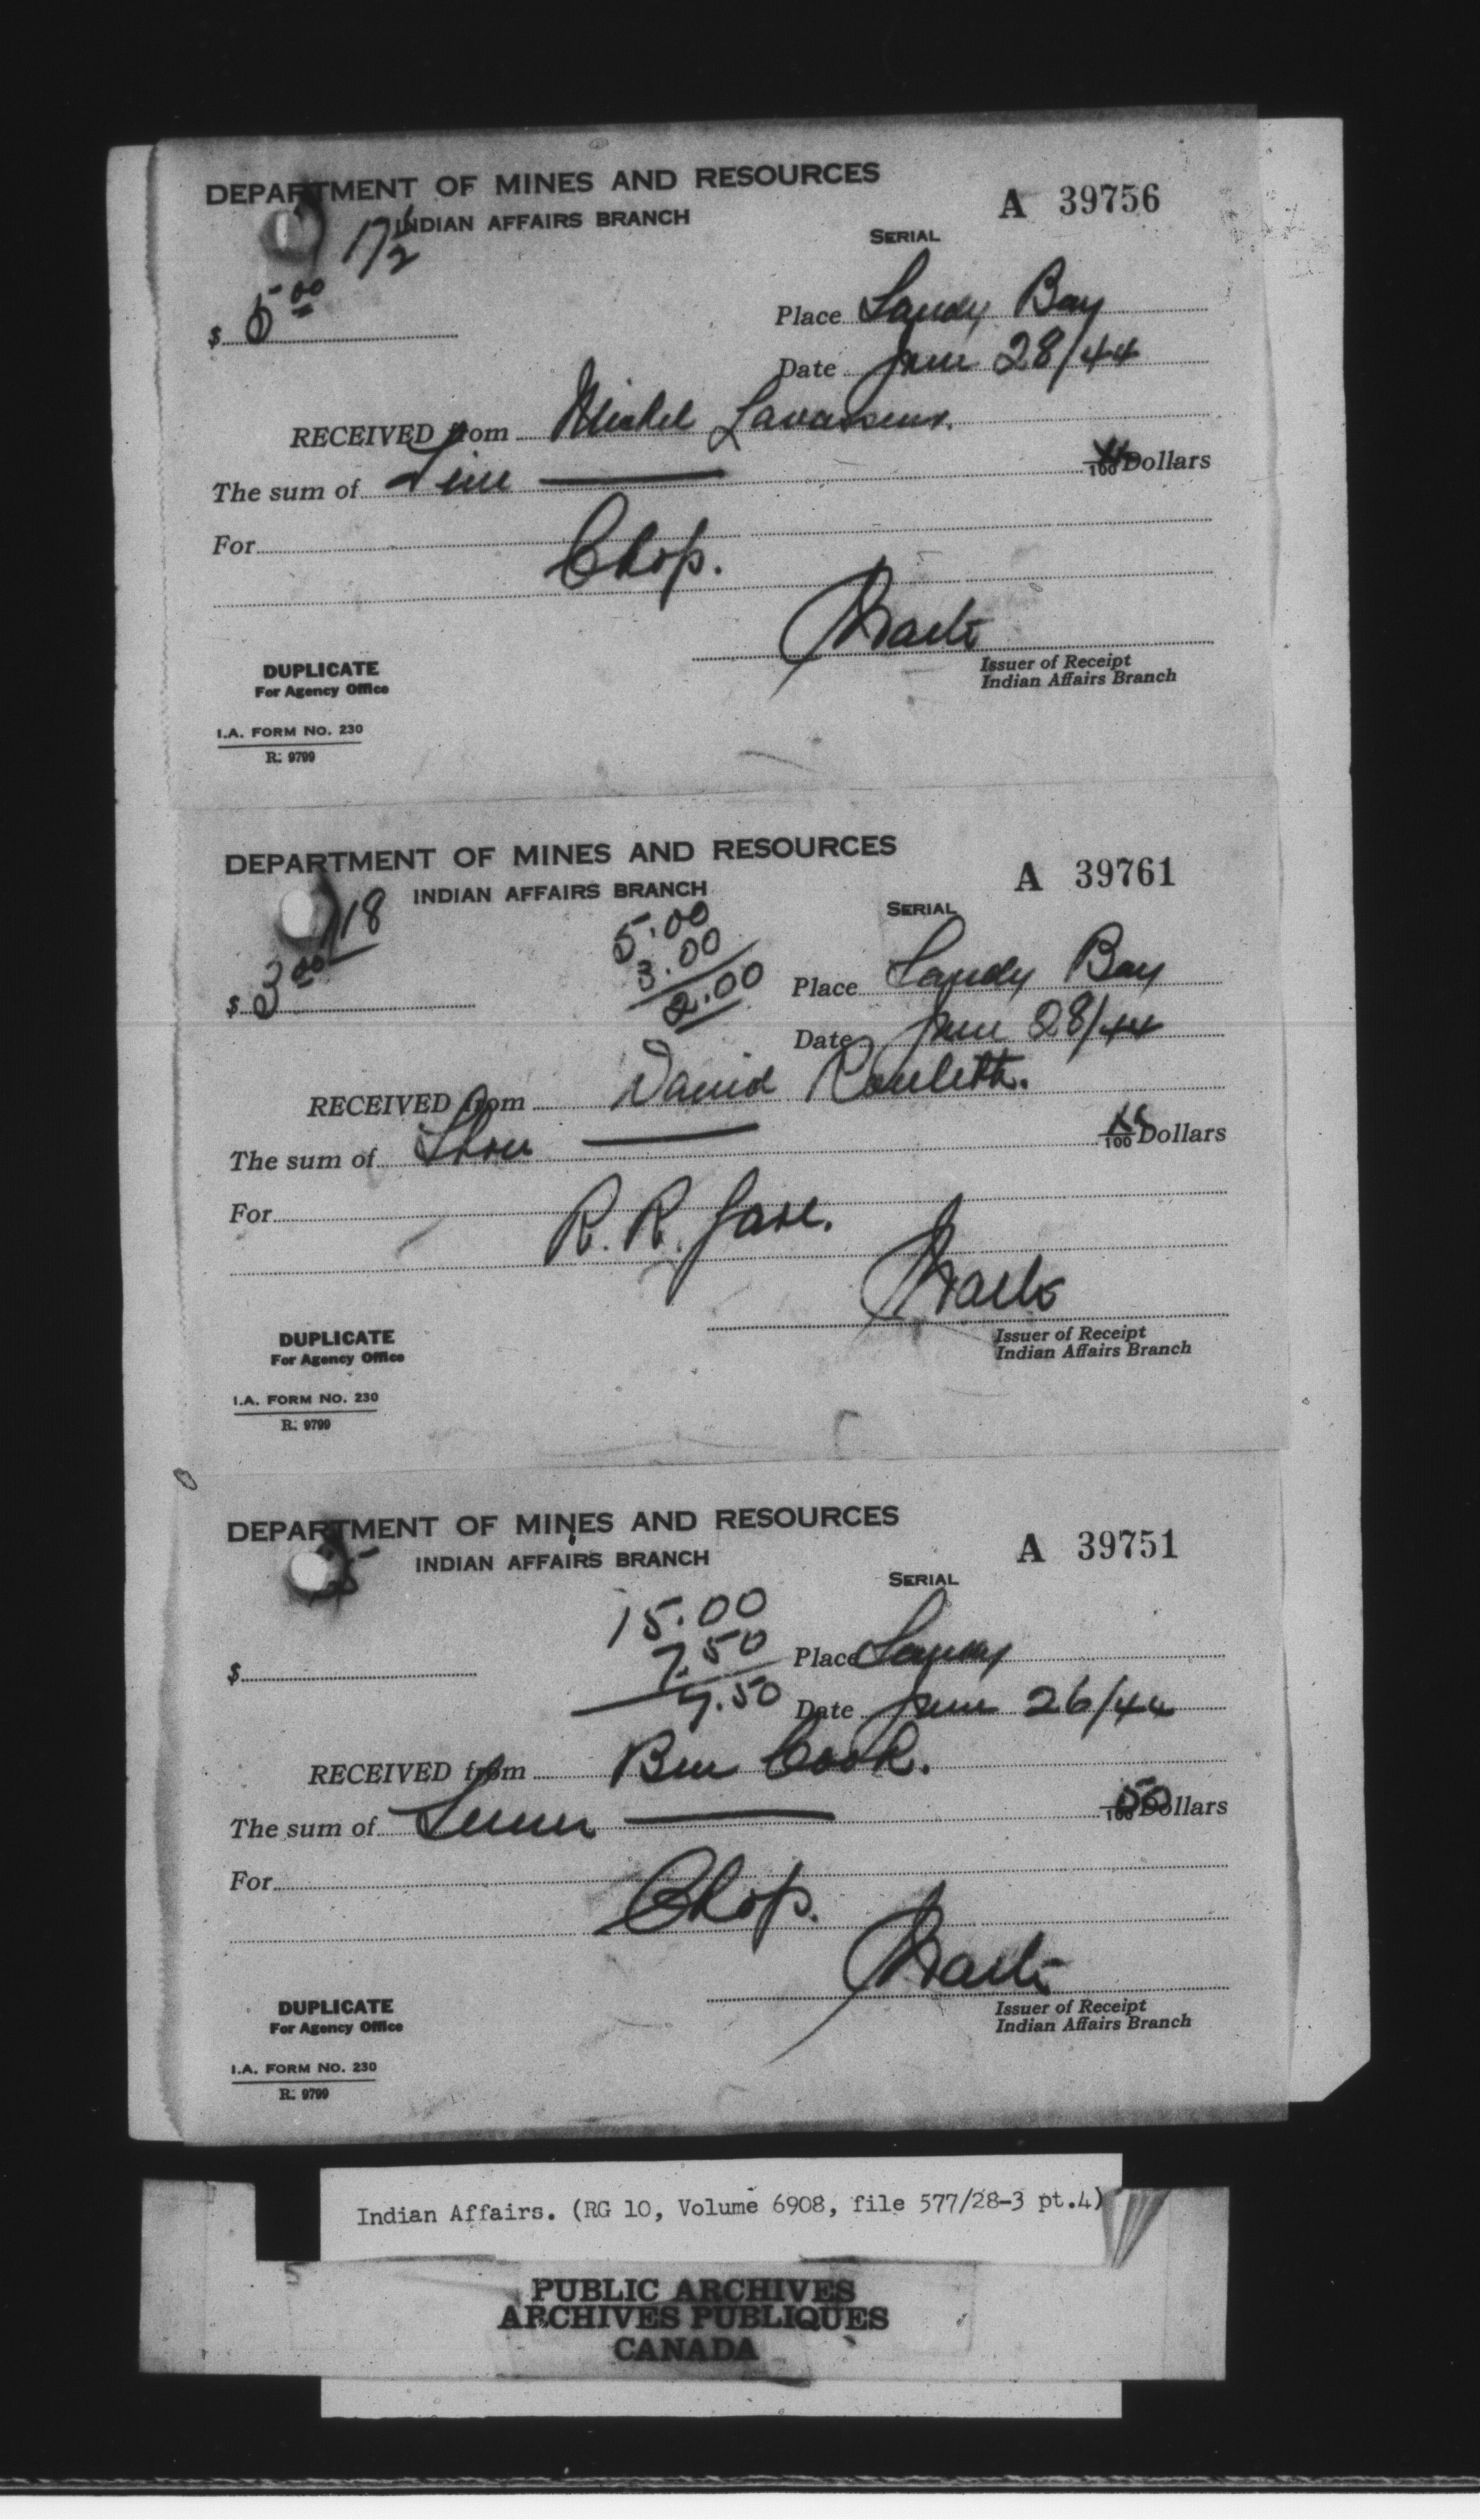 DEPARTMENT OF MINES AND RESOURCES
INDIAN AFFAIRS BRANCH
A 39756
SERIAL
$ 5.00
Place Sandy Bay
Date June 28/44
RECEIVED from Michel Lavasseur.
The sum of Five —— xx/100 Dollars
For
Chop.
Issuer of Receipt
Indian Affairs Branch
DUPLICATE
For Agency Office
I.A. FORM NO. 230
R. 9799
DEPARTMENT OF MINES AND RESOURCES
INDIAN AFFAIRS BRANCH
A 39761
SERIAL
18
5.00
3.00
2.00
$ 3.00
Place Sandy Bay
Date June 28/44
RECEIVED from David Roulette.
The sum of Three —— xx/100 Dollars
For
R. R. fare.
Issuer of Receipt
Indian Affairs Branch
DUPLICATE
For Agency Office
I.A. FORM NO. 230
R. 9799
DEPARTMENT OF MINES AND RESOURCES
INDIAN AFFAIRS BRANCH
A 39751
SERIAL
15.00
7.50
7.50
$
Place Sandy
Date June 26/44
RECEIVED from Ben Cook.
The sum of Seven —— 50/100 Dollars
For
Chop.
Issuer of Receipt
Indian Affairs Branch
DUPLICATE
For Agency Office
I.A. FORM NO. 230
R. 9799
Indian Affairs. (RG 10, Volume 6908, file 577/28-3 pt.4)
PUBLIC ARCHIVES
ARCHIVES PUBLIQUES
CANADA